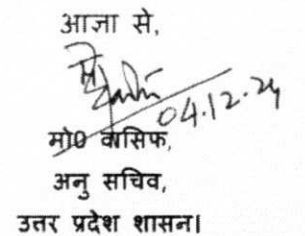 आज्ञा से,
04.12.24
मो0 वासिफ,
अनु सचिव,
उत्तर प्रदेश शासन।